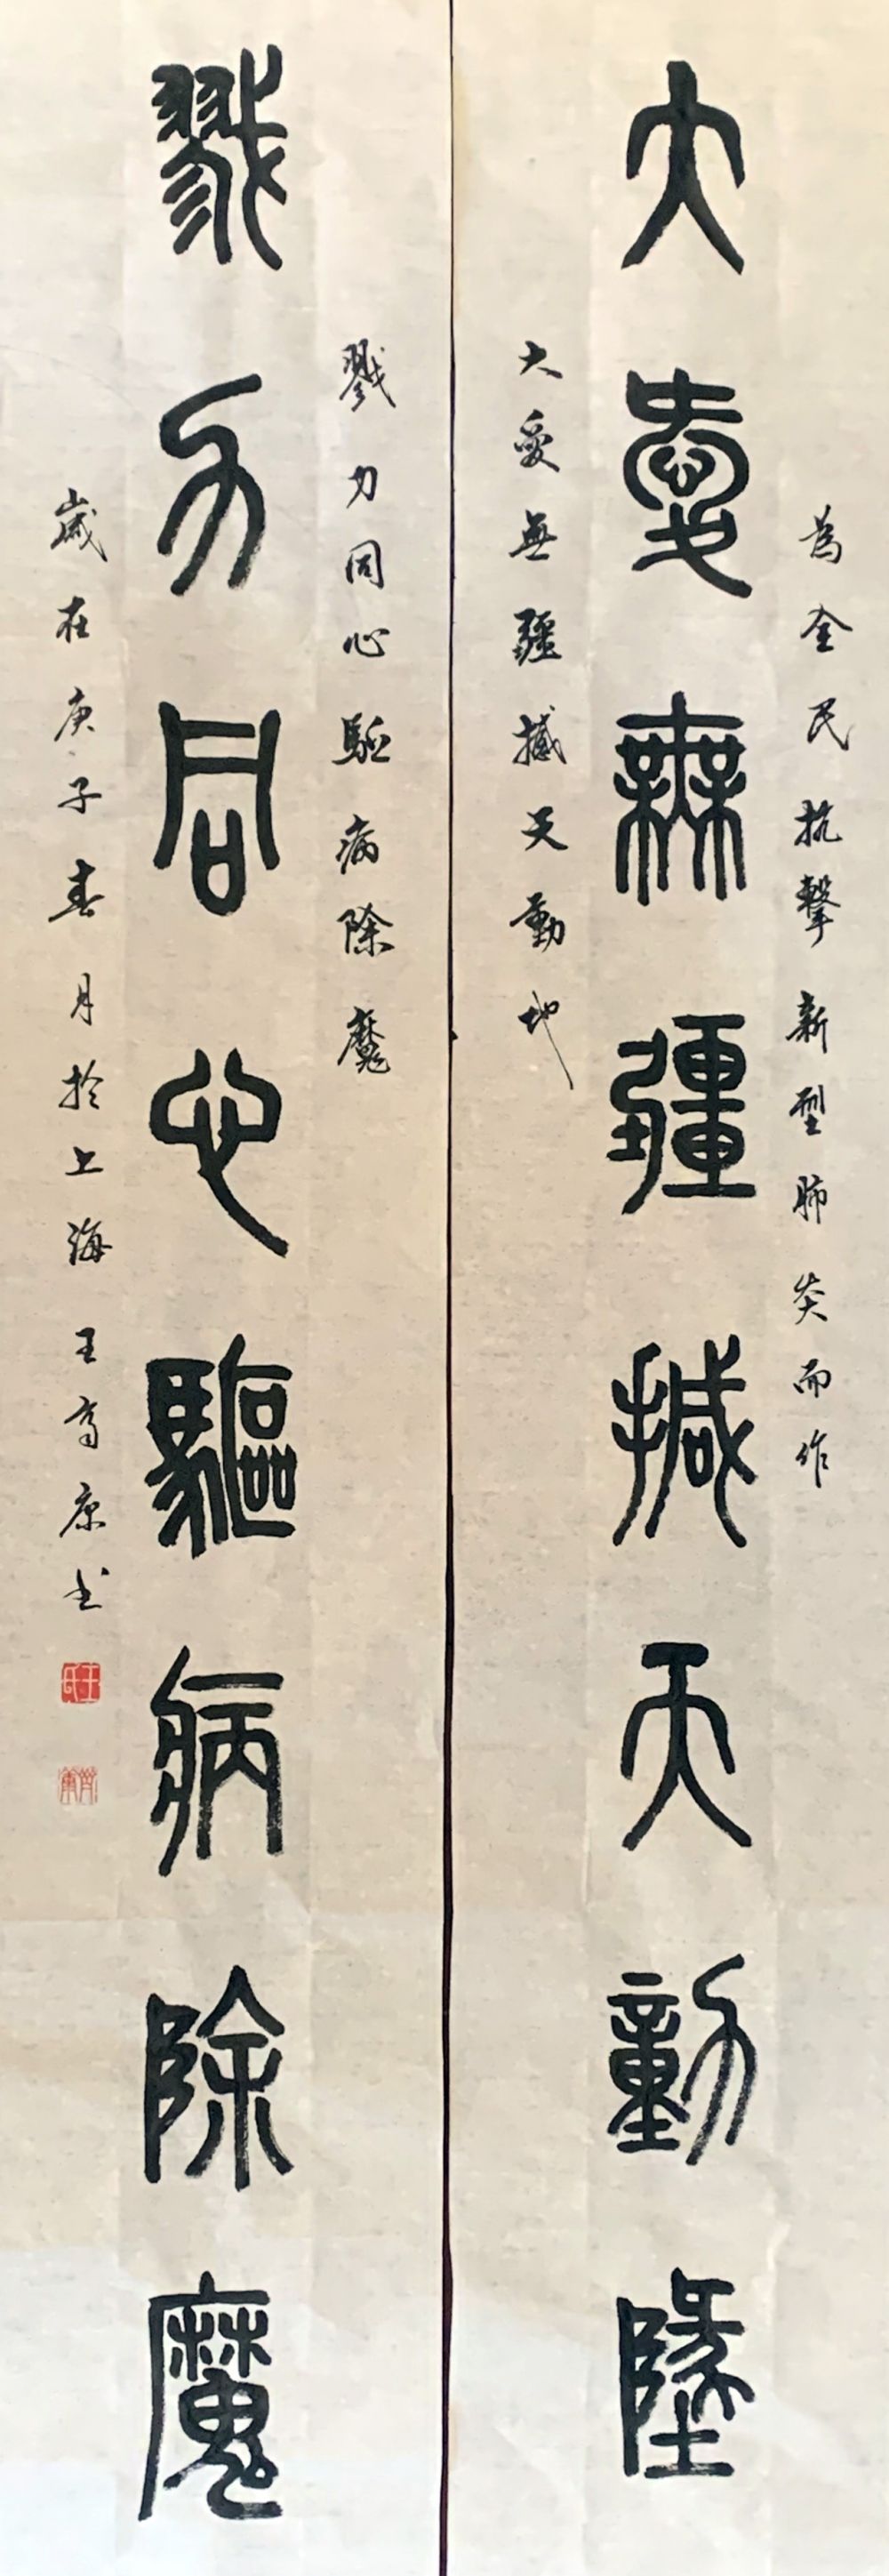 為全民抗擊新型肺炎而作
大愛無疆撼天動地
大愛無疆撼天動地
戮力同心驅病除魔
戮力同心驅病除魔
歲在庚子春月於上海王高康书
王氏